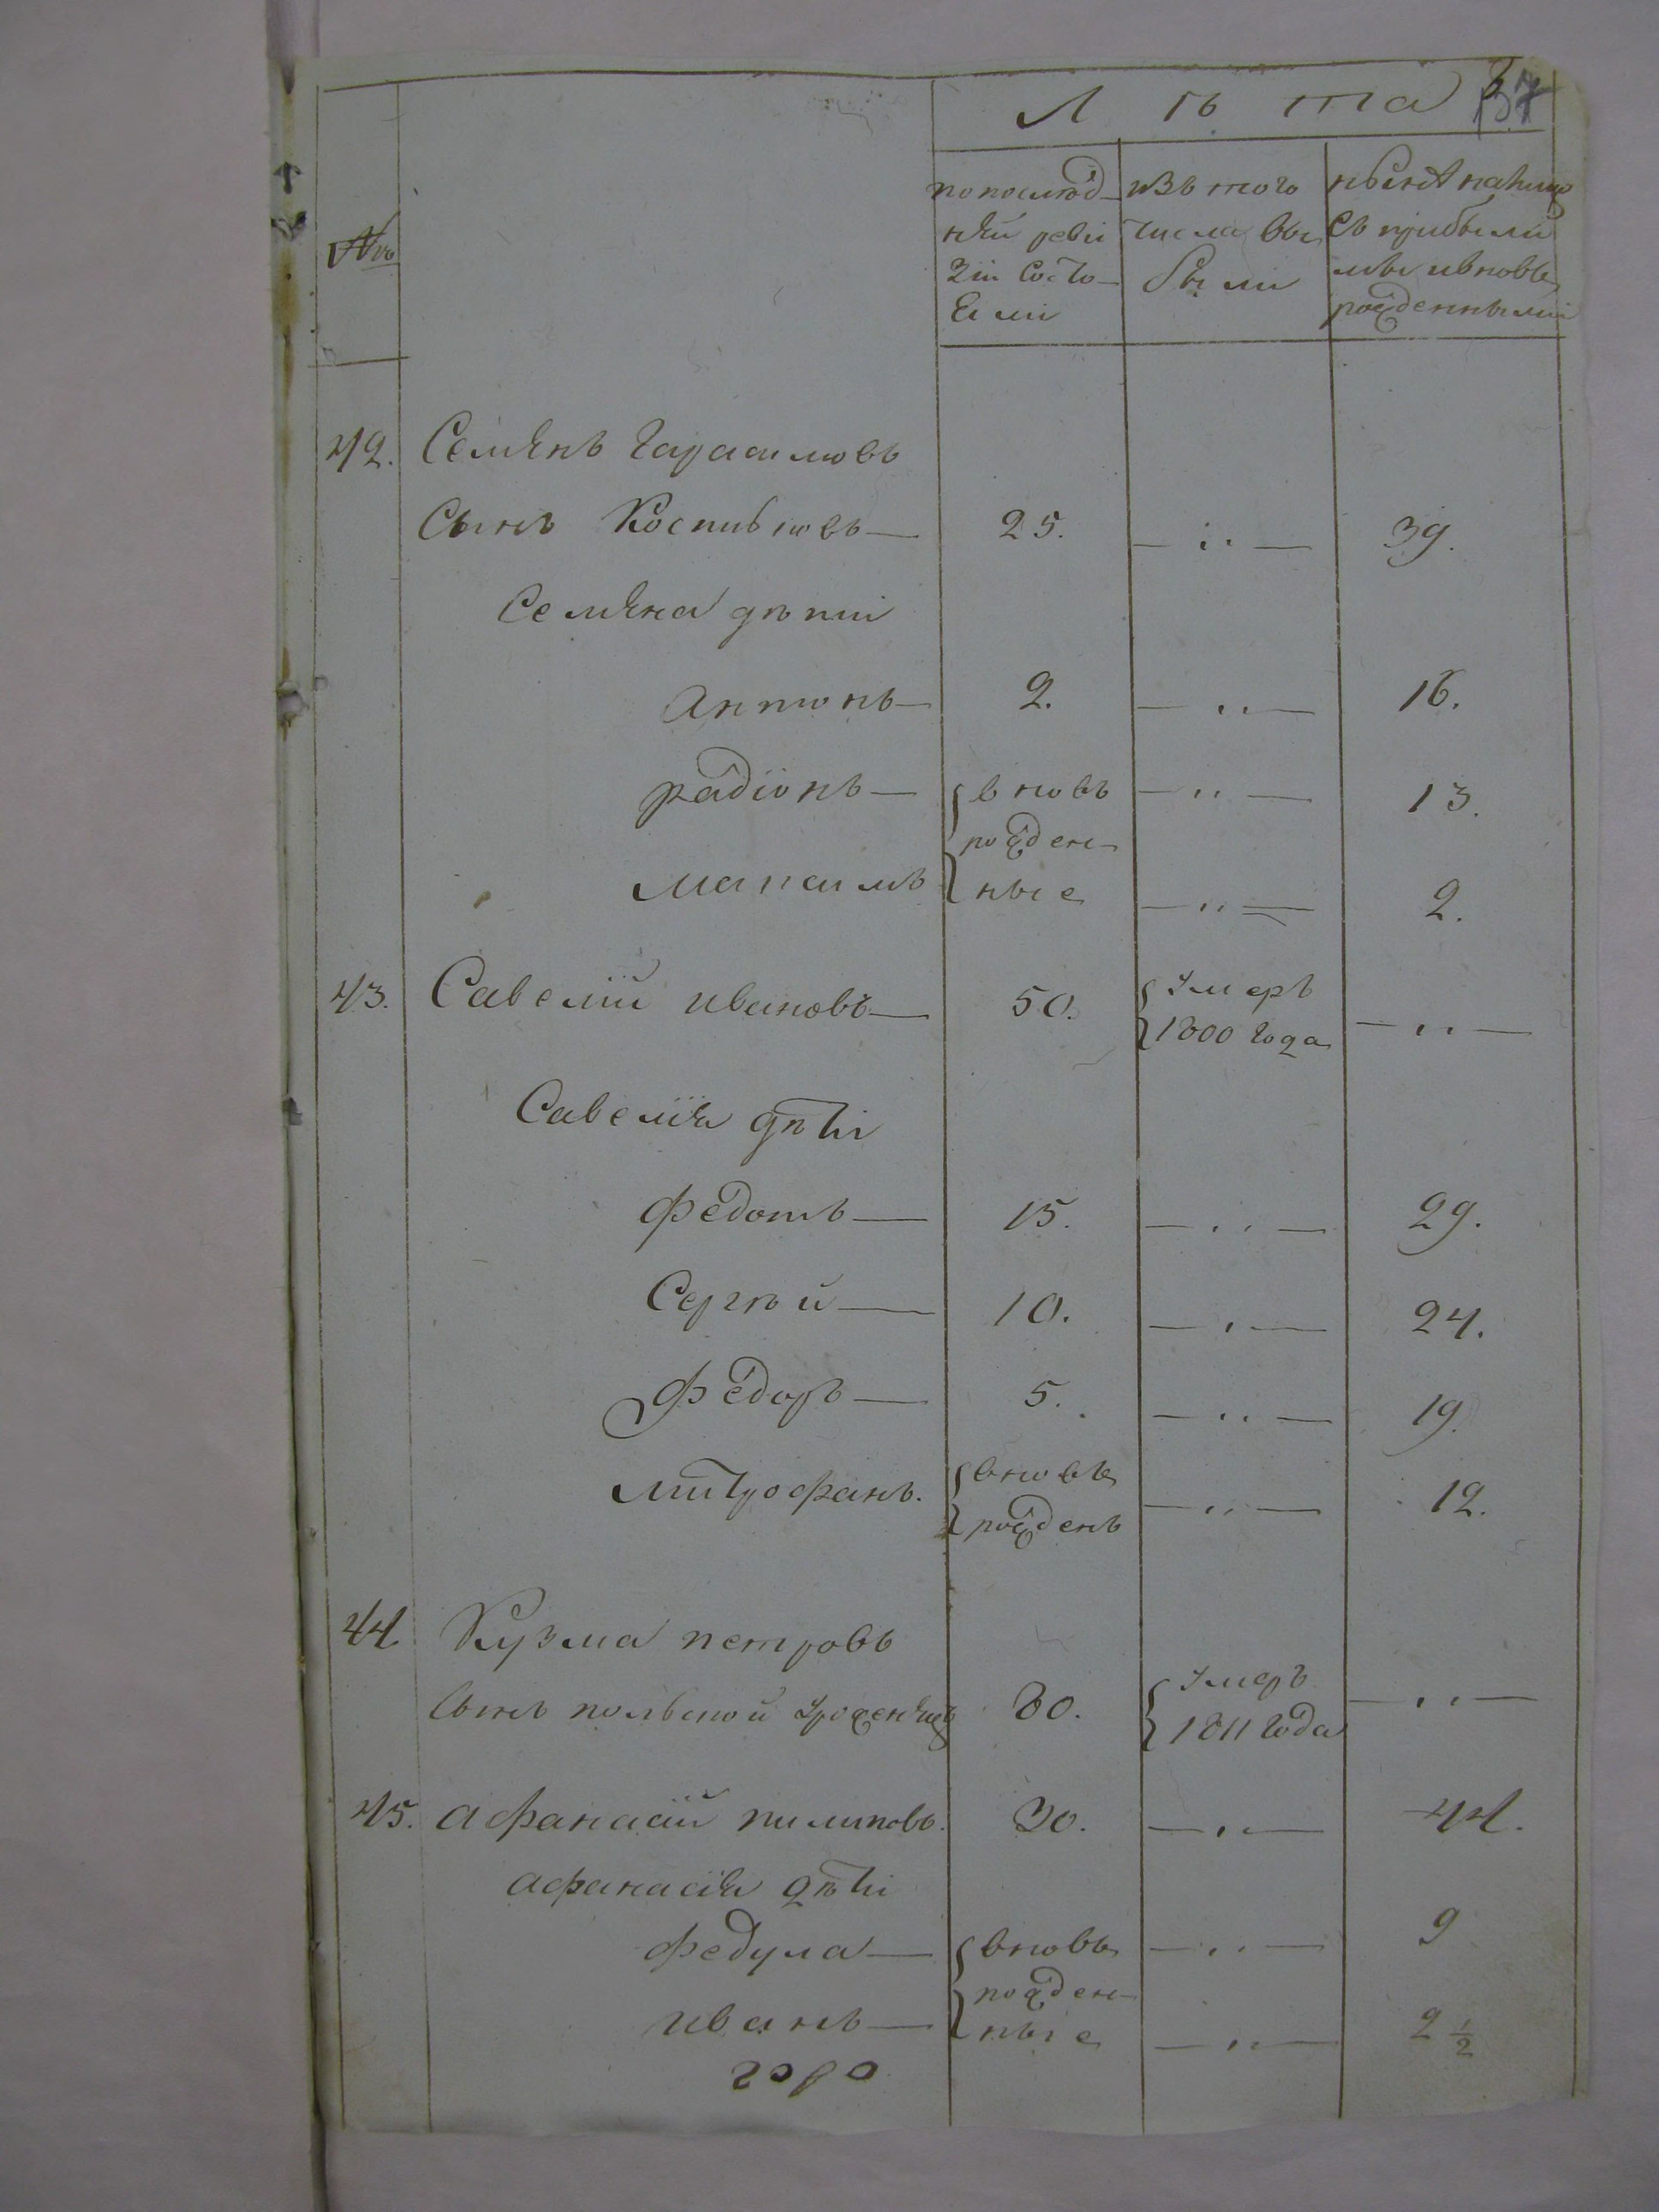 Лѣта 37
№въ
по послѣд-
ней реви
зіи состо-
яли
изъ того
числа вы
были
нынѣ на лицо
съ прибылы
мы и вновь
рожденными
42. Семянъ Гарасимовъ
Сынъ 25. — ,, — 39.
Семяна дѣти
Антонъ — 2. — ,, — 16.
Радіонъ — вновь — ,, — 13.
рожден-
Максимъ ные — ,, — 2.
43. Савелій Ивановъ — 50. умеръ — ,, —
1800 года
Савелія дѣти
Федотъ — 15. — ,, — 29.
Сергѣй — 10. — ,, — 24.
Федоръ — 5. — ,, — 19.
Митрофанъ. вновь — ,, — 12.
рожденъ
44 Кузма Петровъ
сынъ польской уроженецъ 80. умеръ — ,, —
1811 года
45. Афанасій 30. — ,, — 44.
Афанасія дѣти
Федула — вновь — ,, — 9
рожден-
Иванъ — ные — ,, — 2 1/2